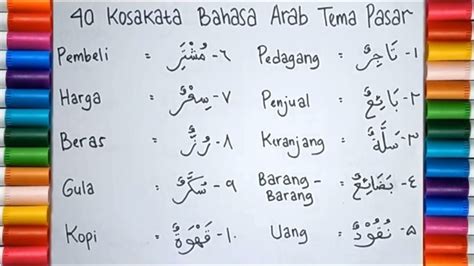 40 Kosakata Bahasa Arab Tema Pasar
Pembeli : ٦- مُشْتَرٍ Pedagang : ١- تَاجِرٌ
Harga : ٧- سِعْرٌ Penjual : ٢- بَائِعٌ
Beras : ٨- رُزٌّ Keranjang : ٣- سَلَّةٌ
Gula : ٩- سُكَّرٌ Barang - : ٤- بَضَائِعٌ
Barang
Kopi : ١٠- قَهْوَةٌ Uang : ٥- نُقُودٌ